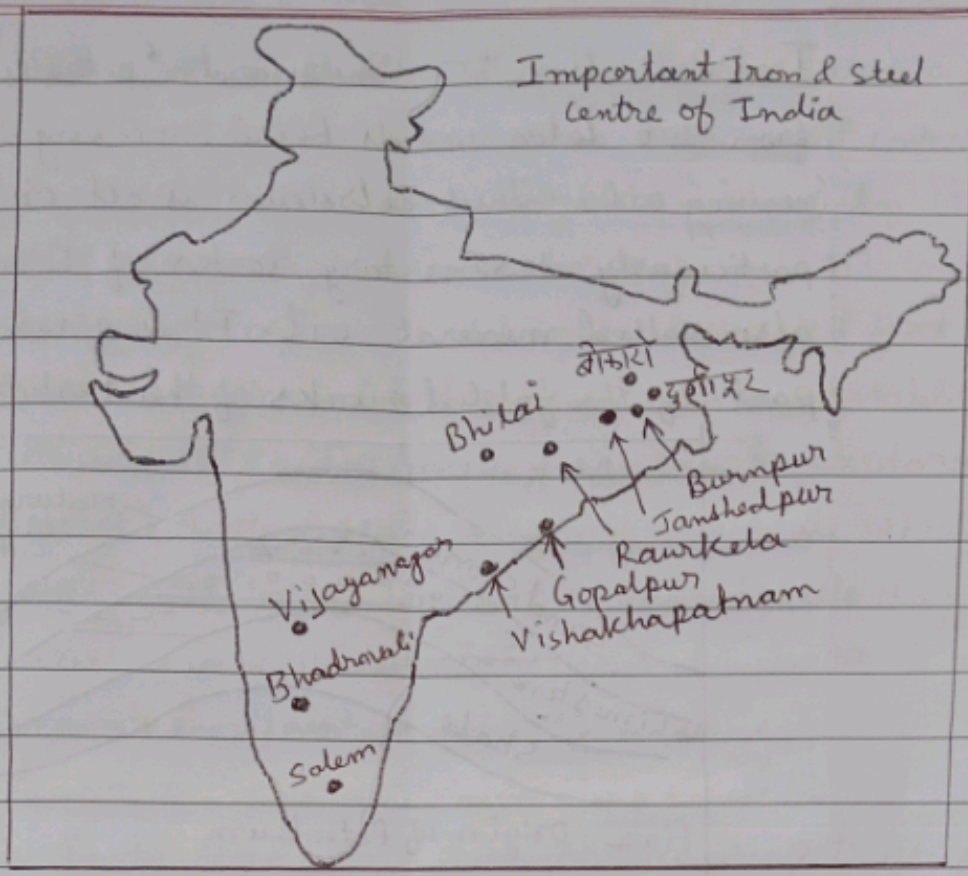 Impcortant Iron & steel
centre of India
बोकारो
दुर्गापुर
Bhilai
Burnpur
Jamshedpur
Raurkela
Gopalpur
Vishakhapatnam
Vijayanagar
Bhadravali
Salem